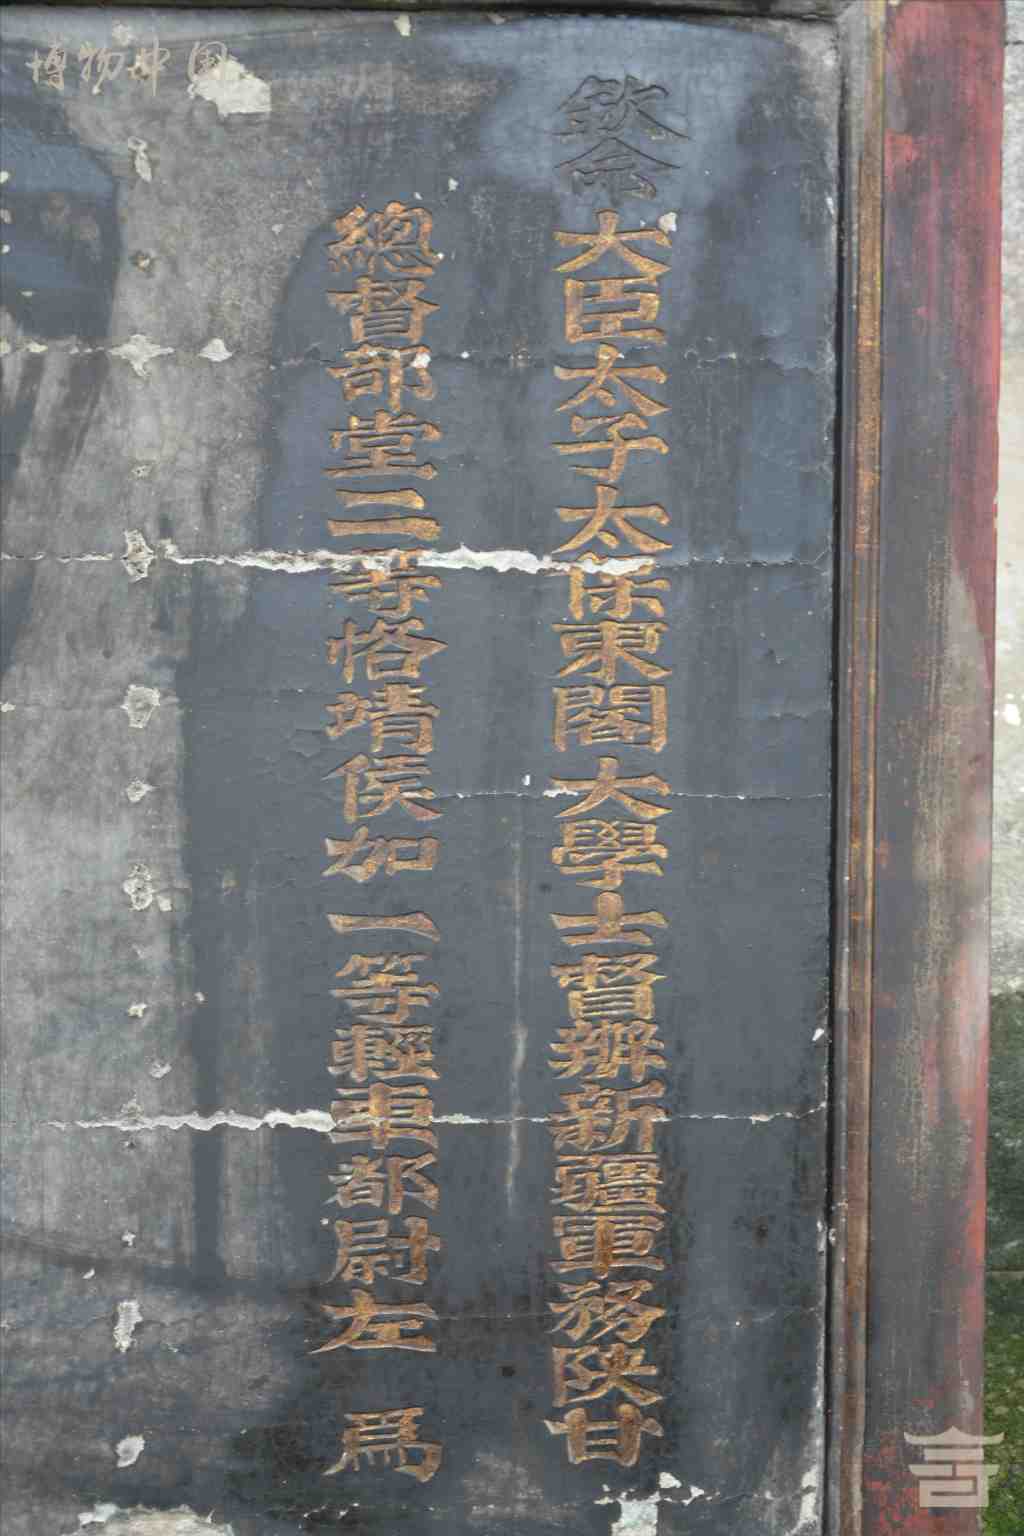 欽命大臣太子太保東閣大學士督辦新疆軍務陝甘
總督部堂二等恪靖侯加一等輕車都尉左為
博物中国